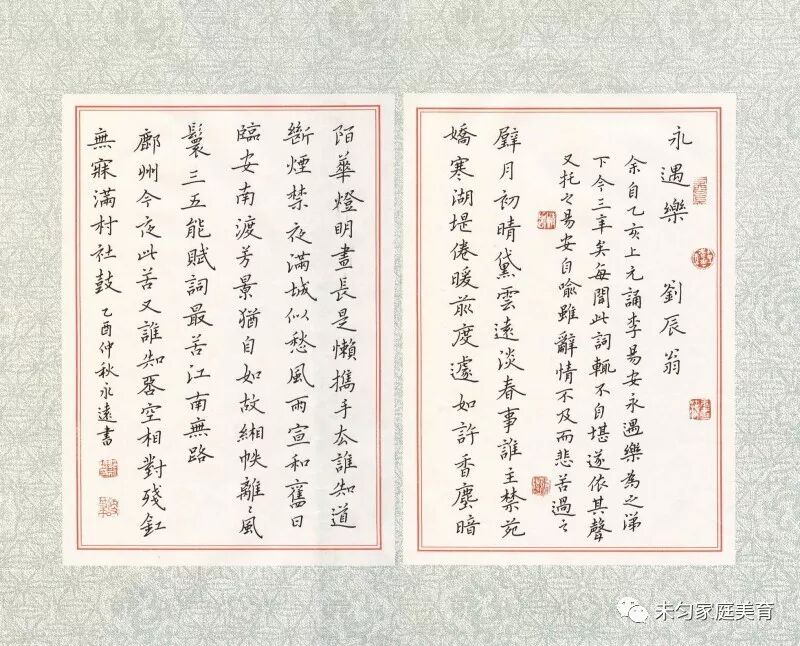 永遇樂 劉辰翁
余自乙亥上元誦李易安永遇樂為之涕
下今三年矣每聞此詞輒不自堪遂依其聲
又托之易安自喻雖辭情不及而悲苦過之
璧月初晴黛雲遠淡春事誰主禁苑
嬌寒湖堤倦暖前度遽如許香塵暗
陌華燈明晝長是懶攜手去誰知道
斷煙禁夜滿城似愁風雨宣和舊日
臨安南渡芳景猶自如故緗帙離〻風
鬟三五能賦詞最苦江南無路
鄜州今夜此苦又誰知否空相對殘釭
無寐滿村社鼓 乙酉仲秋永遠書
未匀家庭美育